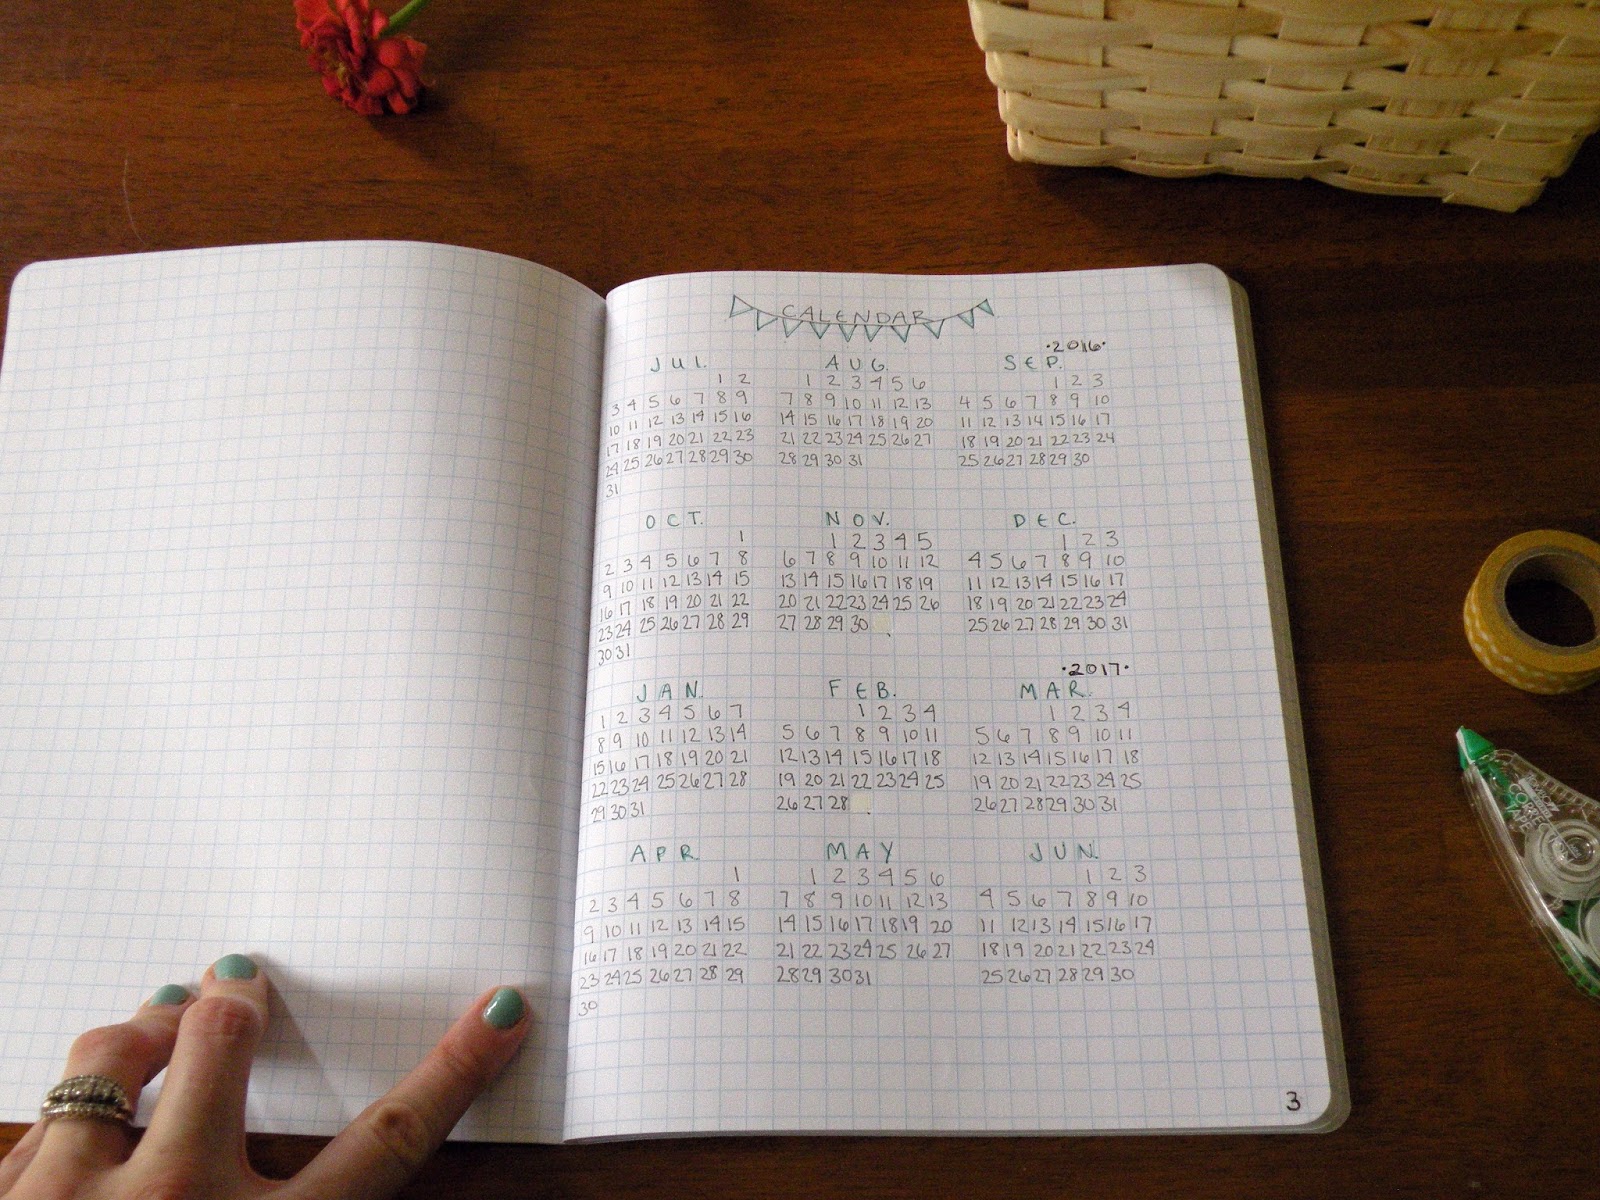 CALENDAR
·2016·
JUL.
1 2
3 4 5 6 7 8 9
10 11 12 13 14 15 16
17 18 19 20 21 22 23
24 25 26 27 28 29 30
31
AUG.
1 2 3 4 5 6
7 8 9 10 11 12 13
14 15 16 17 18 19 20
21 22 23 24 25 26 27
28 29 30 31
SEP.
1 2 3
4 5 6 7 8 9 10
11 12 13 14 15 16 17
18 19 20 21 22 23 24
25 26 27 28 29 30
OCT.
1
2 3 4 5 6 7 8
9 10 11 12 13 14 15
16 17 18 19 20 21 22
23 24 25 26 27 28 29
30 31
NOV.
1 2 3 4 5
6 7 8 9 10 11 12
13 14 15 16 17 18 19
20 21 22 23 24 25 26
27 28 29 30
DEC.
1 2 3
4 5 6 7 8 9 10
11 12 13 14 15 16 17
18 19 20 21 22 23 24
25 26 27 28 29 30 31
·2017·
JAN.
1 2 3 4 5 6 7
8 9 10 11 12 13 14
15 16 17 18 19 20 21
22 23 24 25 26 27 28
29 30 31
FEB.
1 2 3 4
5 6 7 8 9 10 11
12 13 14 15 16 17 18
19 20 21 22 23 24 25
26 27 28
MAR.
1 2 3 4
5 6 7 8 9 10 11
12 13 14 15 16 17 18
19 20 21 22 23 24 25
26 27 28 29 30 31
APR.
1
2 3 4 5 6 7 8
9 10 11 12 13 14 15
16 17 18 19 20 21 22
23 24 25 26 27 28 29
30
MAY
1 2 3 4 5 6
7 8 9 10 11 12 13
14 15 16 17 18 19 20
21 22 23 24 25 26 27
28 29 30 31
JUN.
1 2 3
4 5 6 7 8 9 10
11 12 13 14 15 16 17
18 19 20 21 22 23 24
25 26 27 28 29 30
3
TAPE